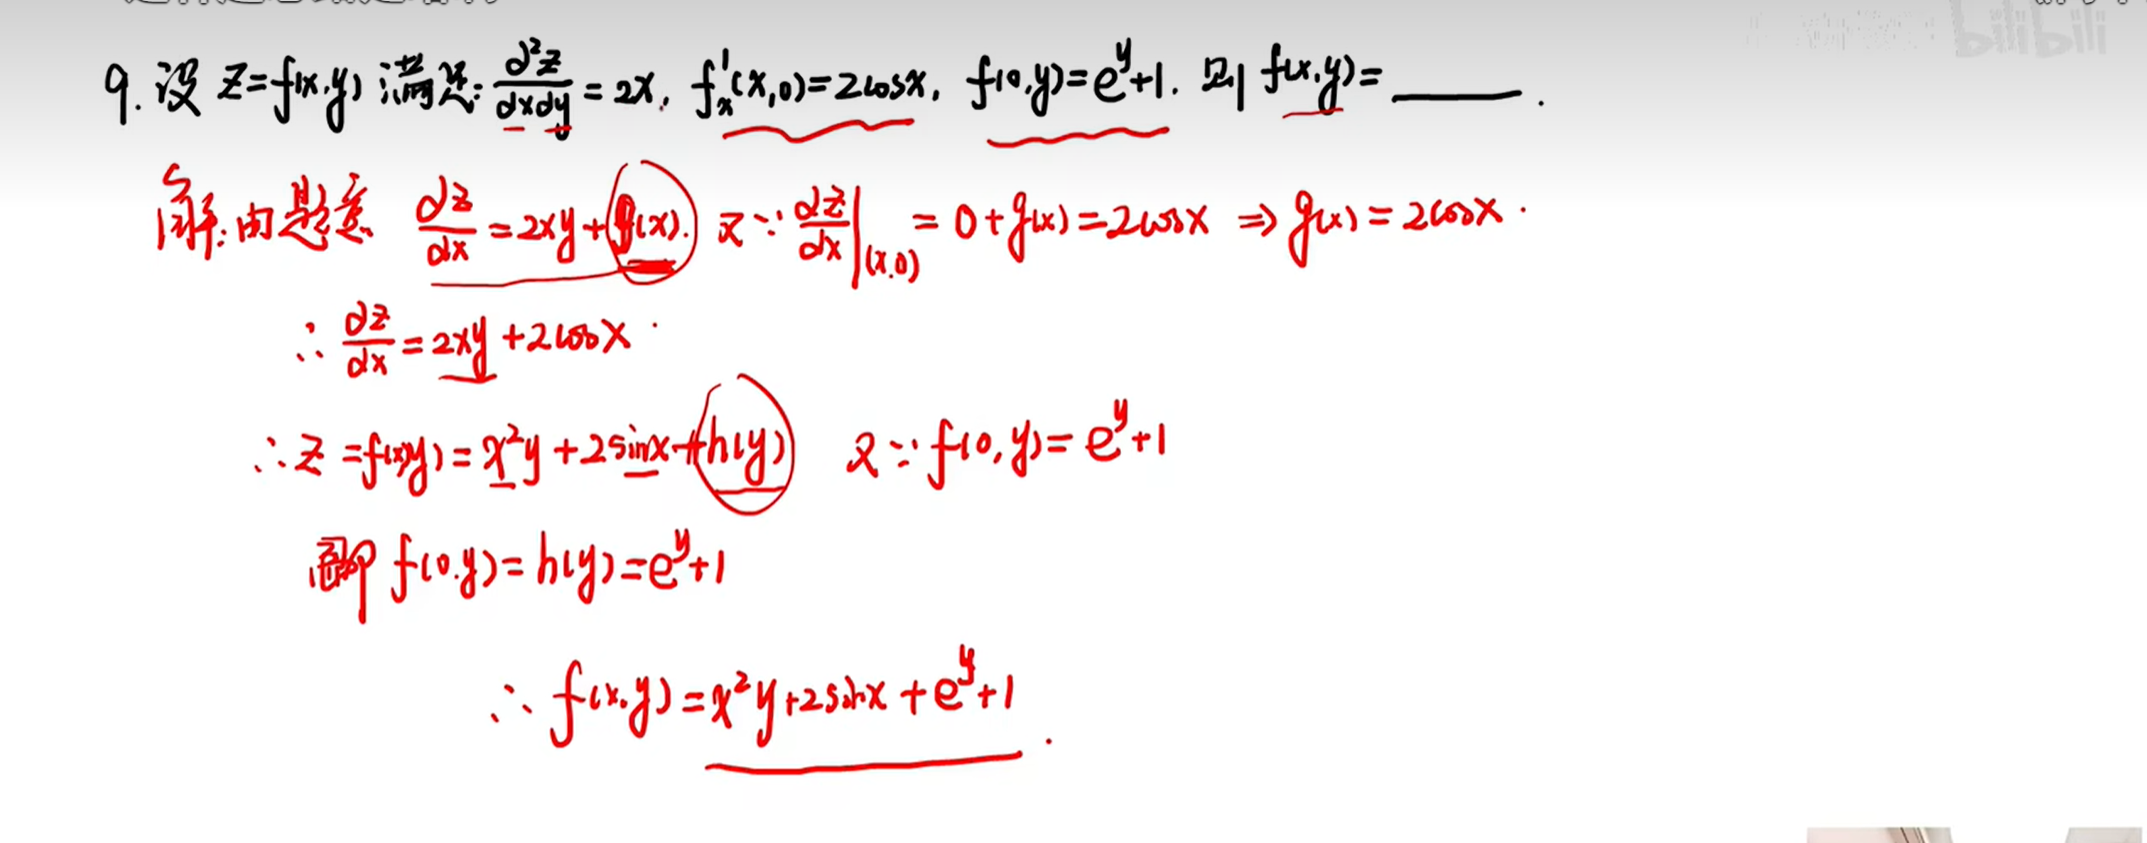 bilibili
9. 设 z=f(x,y) 满足: ∂²z/∂x∂y = 2x, f'ₓ(x,0)=2cosx, f(0,y)=e^y+1. 则 f(x,y)=______.
解:由题意 ∂z/∂x = 2xy+g(x). 又∵ ∂z/∂x|(x,0) = 0+g(x)=2cosx ⇒ g(x)=2cosx.
∴ ∂z/∂x = 2xy+2cosx.
∴ z=f(x,y)=x²y+2sinx+h(y) 又∵ f(0,y)=e^y+1
即 f(0,y)=h(y)=e^y+1
∴ f(x,y)=x²y+2sinx+e^y+1.